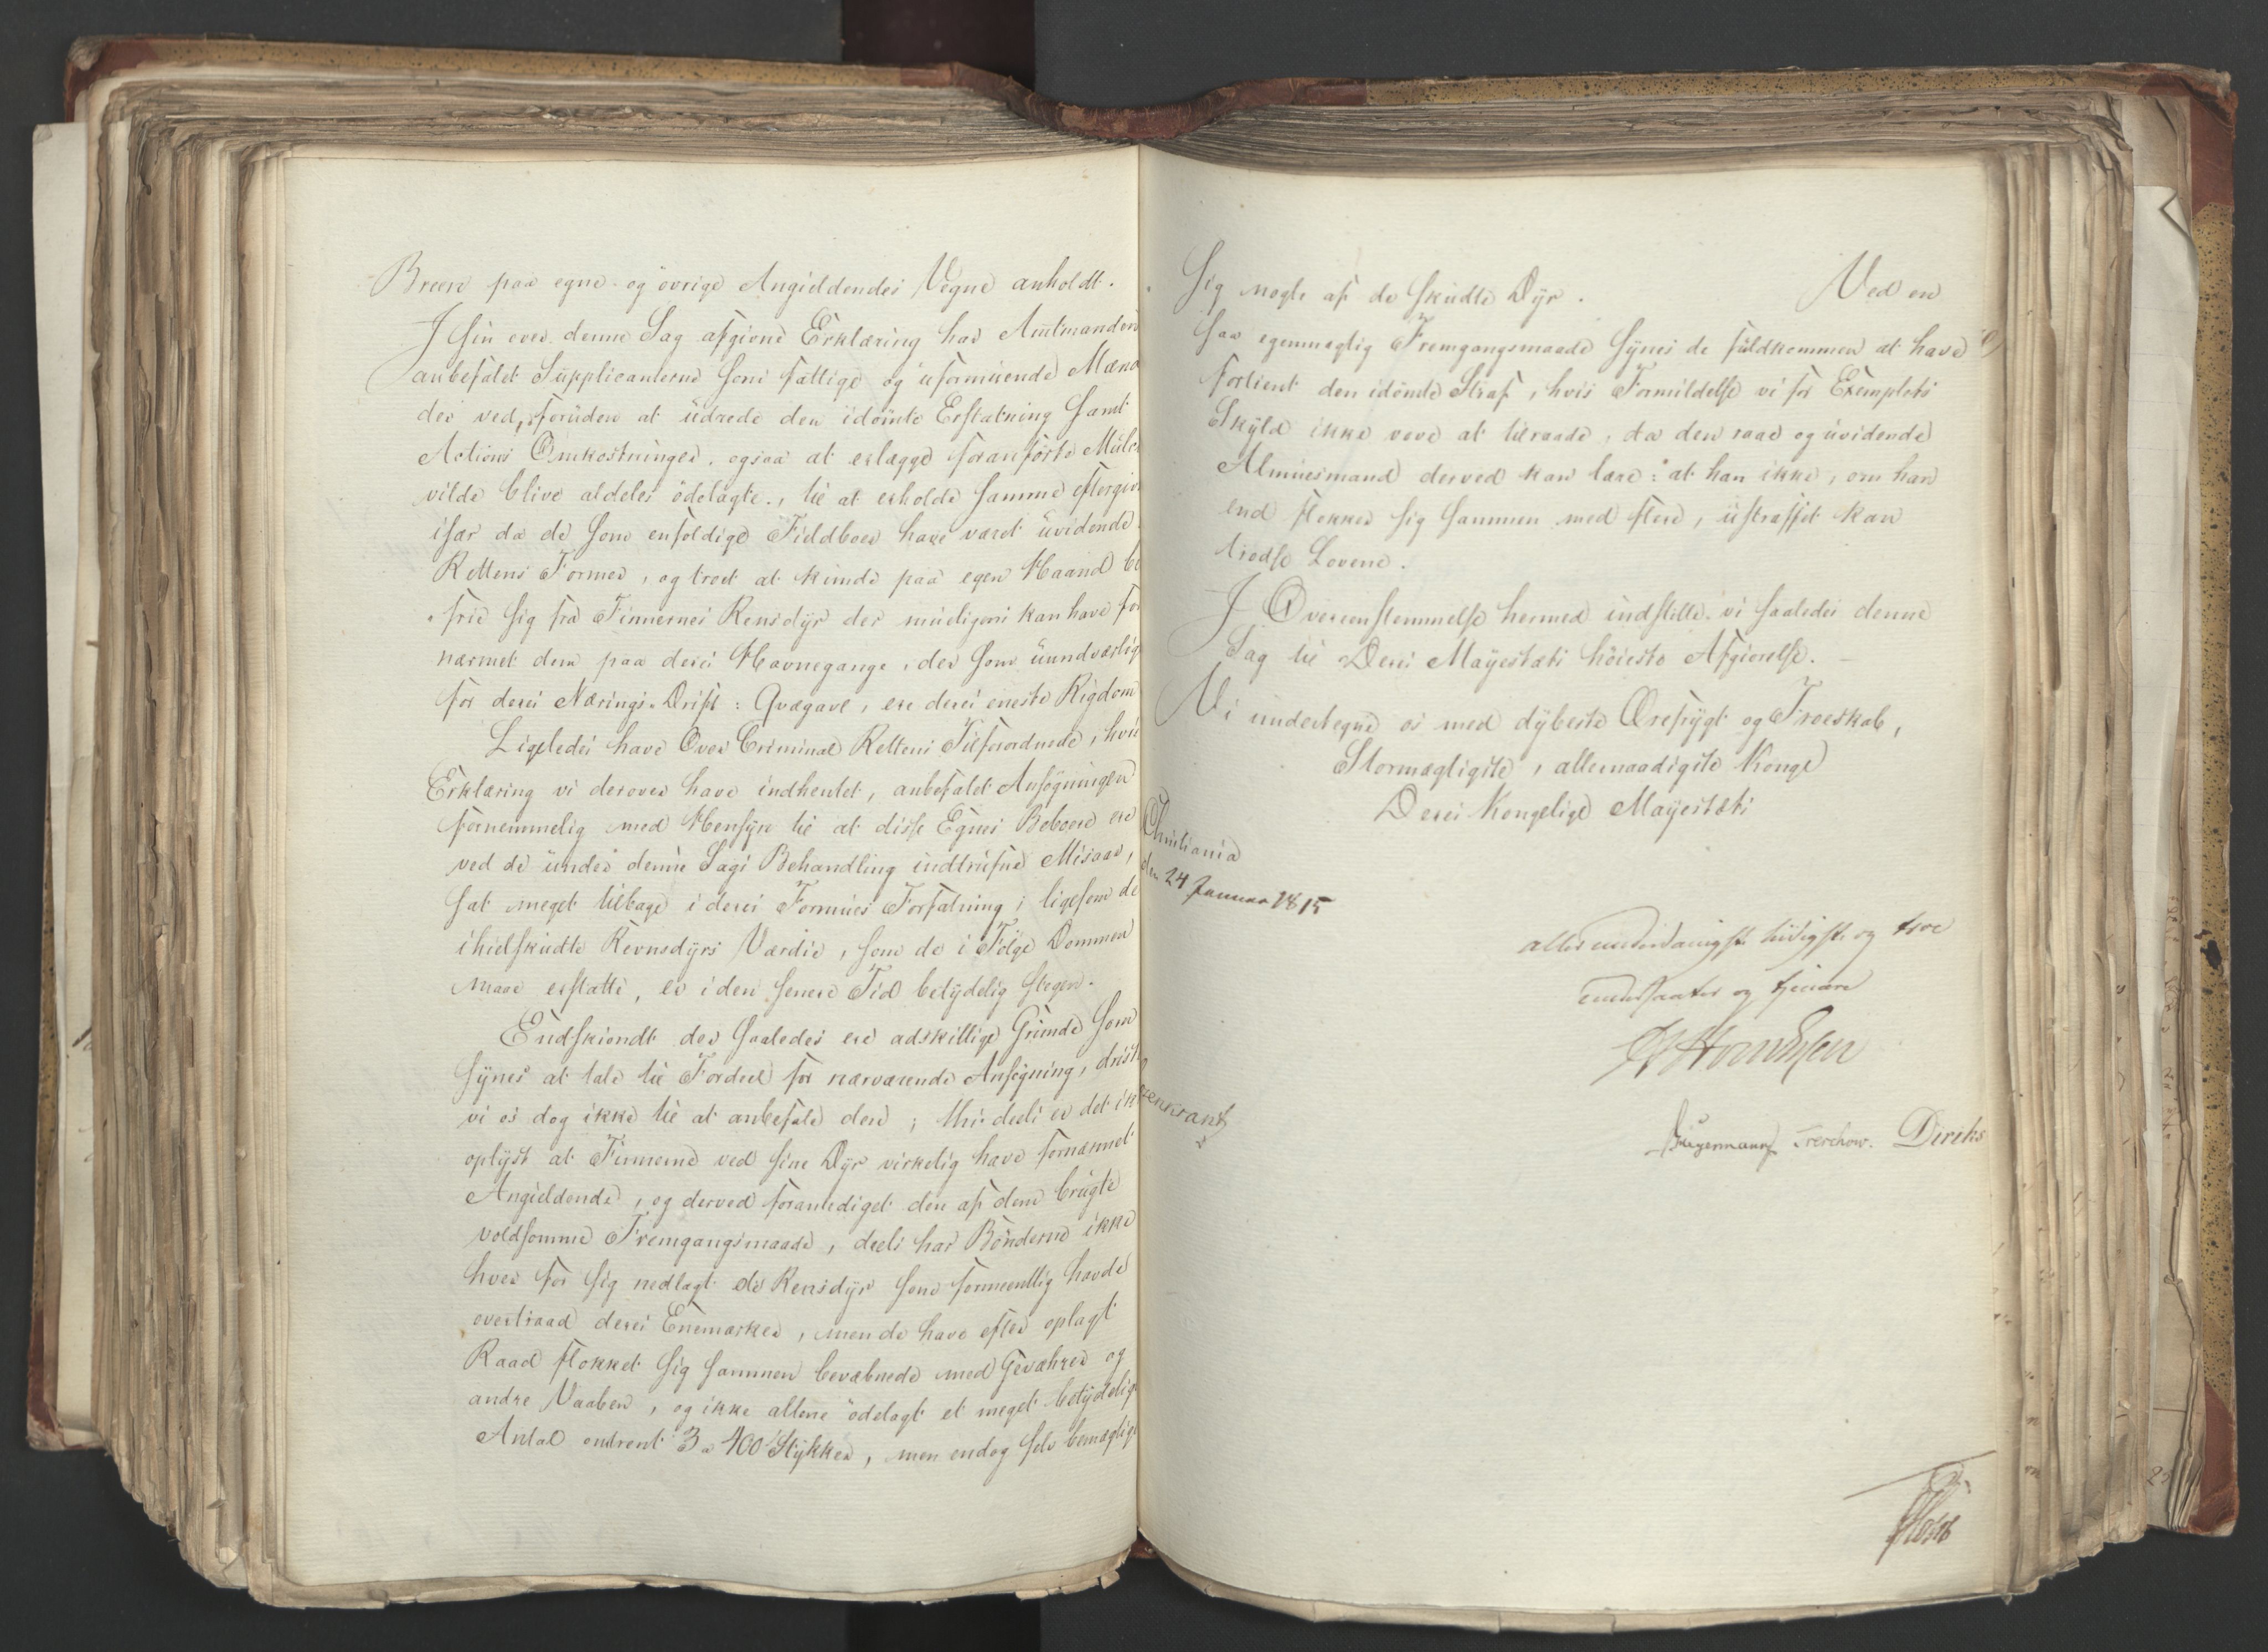 Breen paa egne og övrige Angieldendes Vegne anholdt.
I sin over denne Sag afgivne Erklæring har Amtmanden
anbefalet Supplicanterne som fattige og uformuende Mænd
der ved, foruden at udrede den idömte Erstatning samt
Actions Omkostninger, ogsaa at erlægge foranförte Mulct
vilde blive aldeles ödelagte, til at erholde samme eftergiv
især da de som enfoldige Fieldboer have været uvidende
Rettens Former, og troet at kunde paa egen Haand be
frie sig fra Finnernes Rensdyr der mueligens kan have for
nærmet dem paa deres Havnegange, der som uundværlig
for deres Nærings-Drift: Qvægavl, ere deres eneste Rigdom
Ligeledes have Over Criminal Rettens Tilforordnede, hvis
Erklæring vi derover have indhentet, anbefalet Ansögningen
fornemmelig med Hensyn til at disse Egnes Beboere ere
ved de under denne Sags Behandling indtrufne Misaar,
sat meget tilbage i deres Formues Forfatning, ligesom de
ihielskudte Revnsdyrs Værdie, som de i Fölge Dommen
maae erstatte, er i den senere Tid betydelig stegen.
Endskiöndt der saaledes ere adskillige Grunde som
synes at tale til Fordeel for nærværende Ansögning, drist
vi os dog ikke til at anbefale den; thi deels er det ik
oplyst at Finnerne ved sine Dyr virkelig have fornærmet
Angieldende, og derved foranlediget den af dem brugte
voldsomme Fremgangsmaade, deels har Bönderne ikke
hver for sig nedlagt de Rensdyr som formeentlig havde
overtraad deres Enemærker, men de have efter oplagt
Raad flokket sig sammen bevæbnede med Geværer og
andre Vaaben, og ikke allene ödelagt et meget betydelig
Antal omtrent 3 a 400 Stykker, men endog selv bemægtige
sig nogle af de skudte Dyr. Ved en
saa egenmægtig Fremgangsmaade synes de fuldkommen at have
fortient den idömte Straf, hvis Formildelse vi for Exemplets
Skyld ikke vove at tilraade, da den raae og uvidende
Almuesmand derved kan lære: at han ikke, om han
end flokker sig sammen med flere, ustraffet kan
trodse Lovene.
I Overeenstemmelse hermed indstille vi saaledes denne
Sag til Deres Mayestæts höieste Afgiörelse.
Vi undertegne os med dybeste Ærefrygt og Troeskab,
Stormægtigste, allernaadigste Konge
Deres Kongelige Mayestæts
Christiania
den 24 Januar 1815
allerunderdanigste lydigste og troe
undersaatter og tjenere
senkrantz
Treschow. Diriks